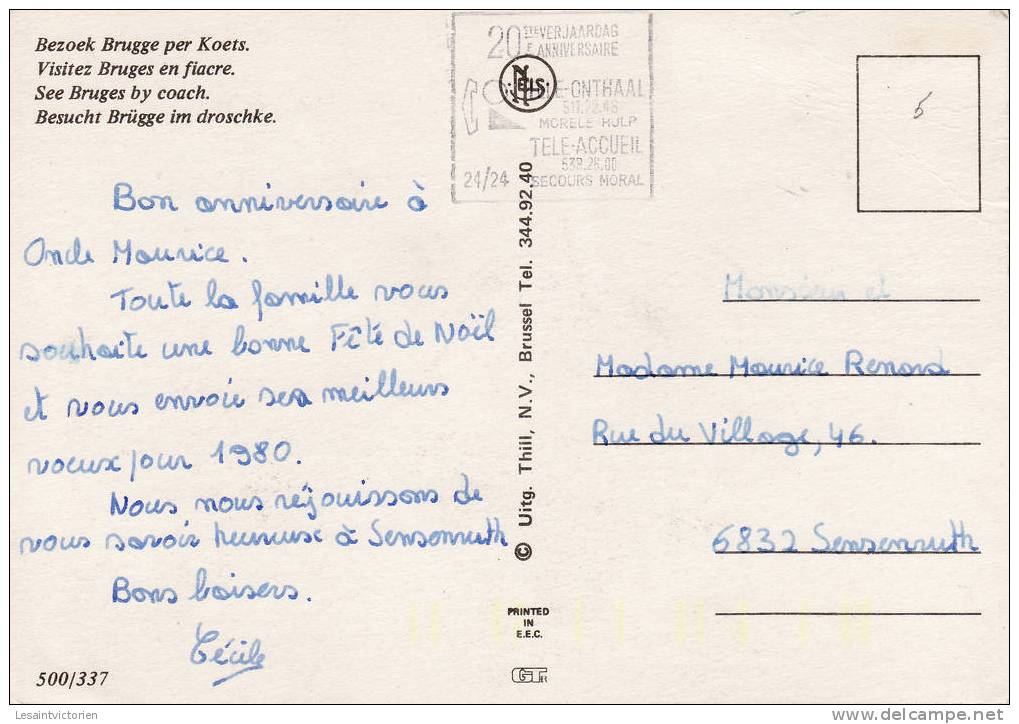 Bezoek Brugge per Koets.
Visitez Bruges en fiacre.
See Bruges by coach.
Besucht Brügge im droschke.
20 STE VERJAARDAG
E ANNIVERSAIRE
TELE-ONTHAAL
MORELE HULP
TELE-ACCUEIL
538.28.00
24/24 SECOURS MORAL
NELS
5
Bon anniversaire à
Oncle Maurice.
Toute la famille vous
souhaite une bonne Fête de Noël
et vous envoie ses meilleurs
voeux pour 1980.
Nous nous réjouissons de
vous savoir heureux à Sensenruth
Bons baisers.
Cécile
500/337
© Uitg. Thill, N.V., Brussel Tel. 344.92.40
PRINTED
IN
E.E.C.
GT
Monsieur et
Madame Maurice Renard
Rue du Village, 46.
6832 Sensenruth
Lesaintvictorien
delcampe.net